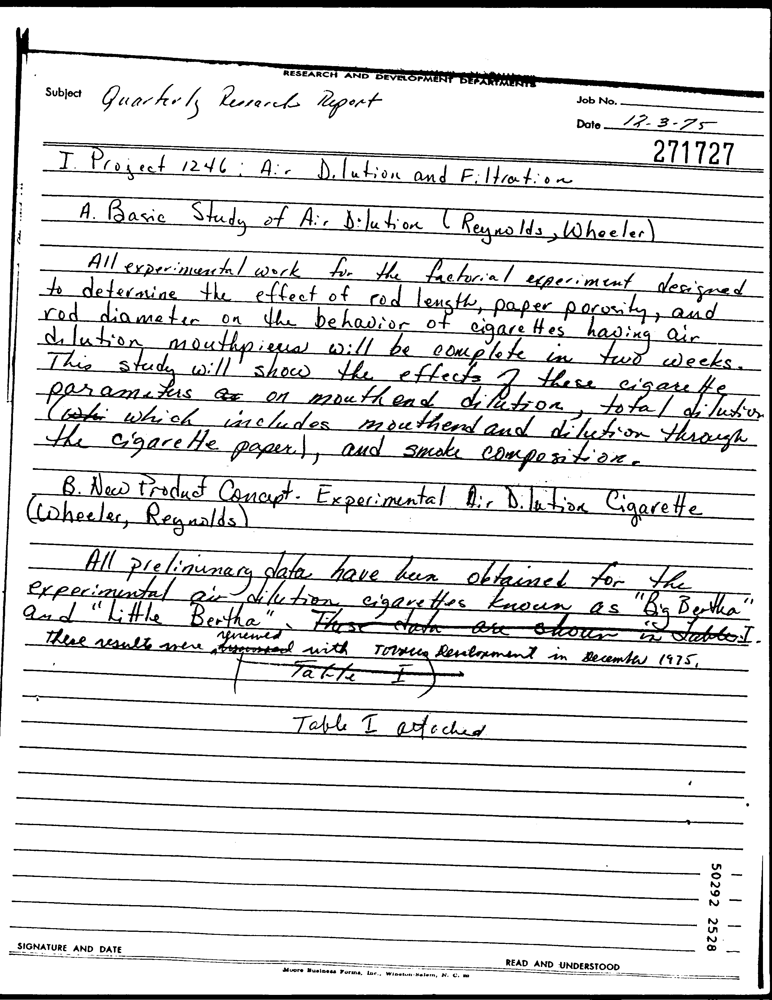 RESEARCH AND DEVELOPMENT DEPARTMENTS
Subject Quarterly Research Report
Job No.
Date 12-3-75
271727
I. Project 1246: Air Dilution and Filtration
A. Basic Study of Air Dilution (Reynolds, Wheeler)
All experimental work for the factorial experiment designed
to determine the effect of rod length, paper porosity, and
rod diameter on the behavior of cigarettes having air
dilution mouthpieces will be complete in two weeks.
This study will show the effects of these cigarette
parameters on mouthend dilution, total dilution
(which includes mouthend and dilution through
the cigarette paper), and smoke composition.
B. New Product Concept - Experimental Air Dilution Cigarette
(Wheeler, Reynolds)
All preliminary data have been obtained for the
experimental air dilution cigarettes known as "Big Bertha"
and "Little Bertha". These data are shown in Table I.
reviewed
These results were discussed with Tobacco Development in December 1975.
Table I
Table I attached
50292 2528
SIGNATURE AND DATE
READ AND UNDERSTOOD
Moore Business Forms, Inc., Winston-Salem, N. C.